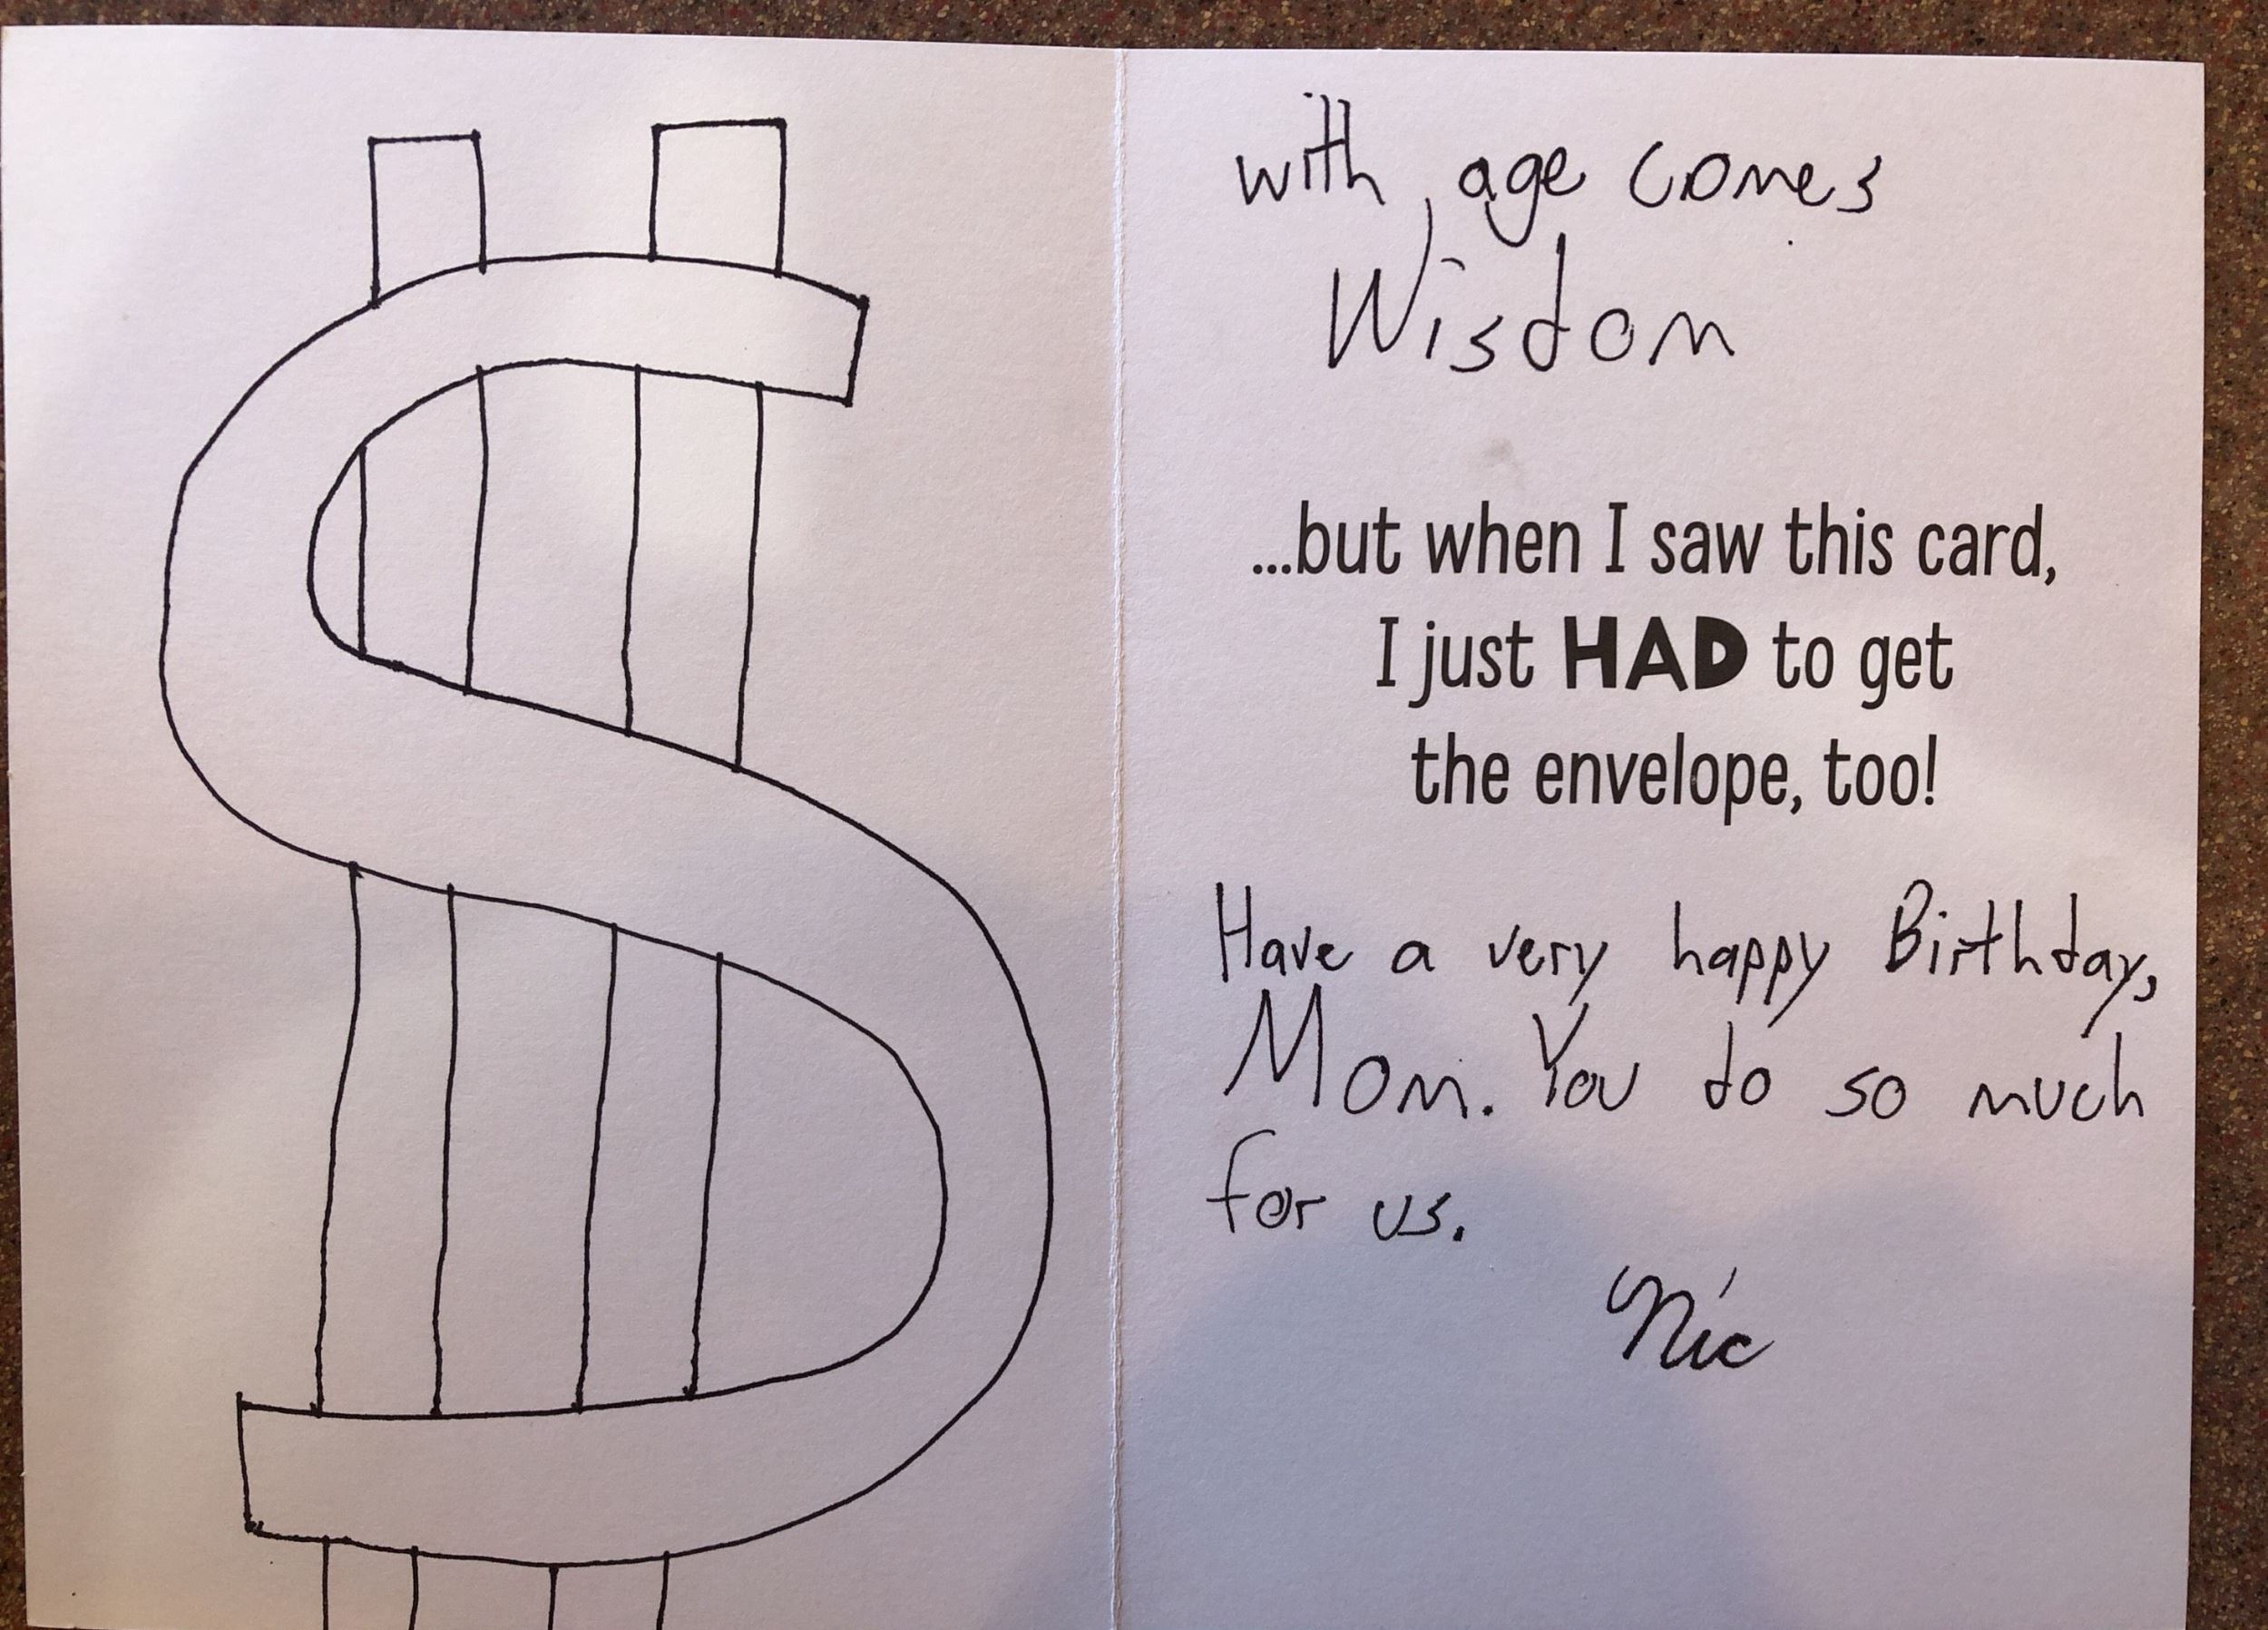 with age comes
Wisdom
...but when I saw this card,
I just HAD to get
the envelope, too!
Have a very happy Birthday,
Mom. You do so much
for us.
Nic